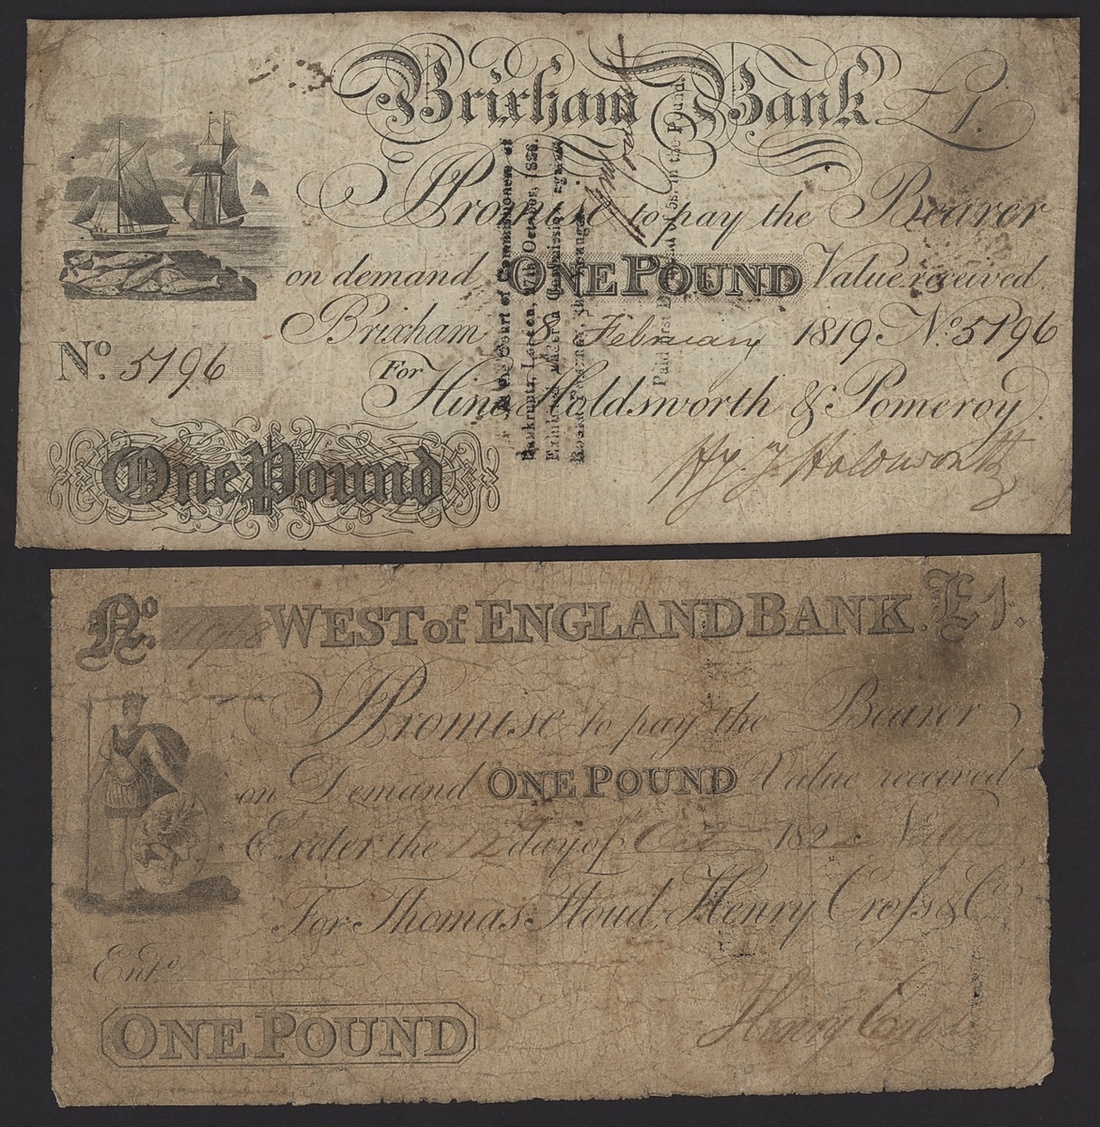 Brixham Bank £1.
I Promise to pay the Bearer
on demand ONE POUND Value received
Brixham 8 February 1819 No. 5196
No. 5196
For Hine Holdsworth & Pomeroy.
One Pound
Hy. J. Holdsworth
At the Court of Commissioners of
Bankrupts, London, 27th October, 1826.
Exhibited under a Commission against
Paid First Dividend of in the Pound.
No. WEST of ENGLAND BANK. £1.
I Promise to pay the Bearer
on Demand ONE POUND Value received
Exeter the 12 day of Oct 182 No
For Thomas Floud, Henry Cross & Co.
Entd.
Henry Cross
ONE POUND